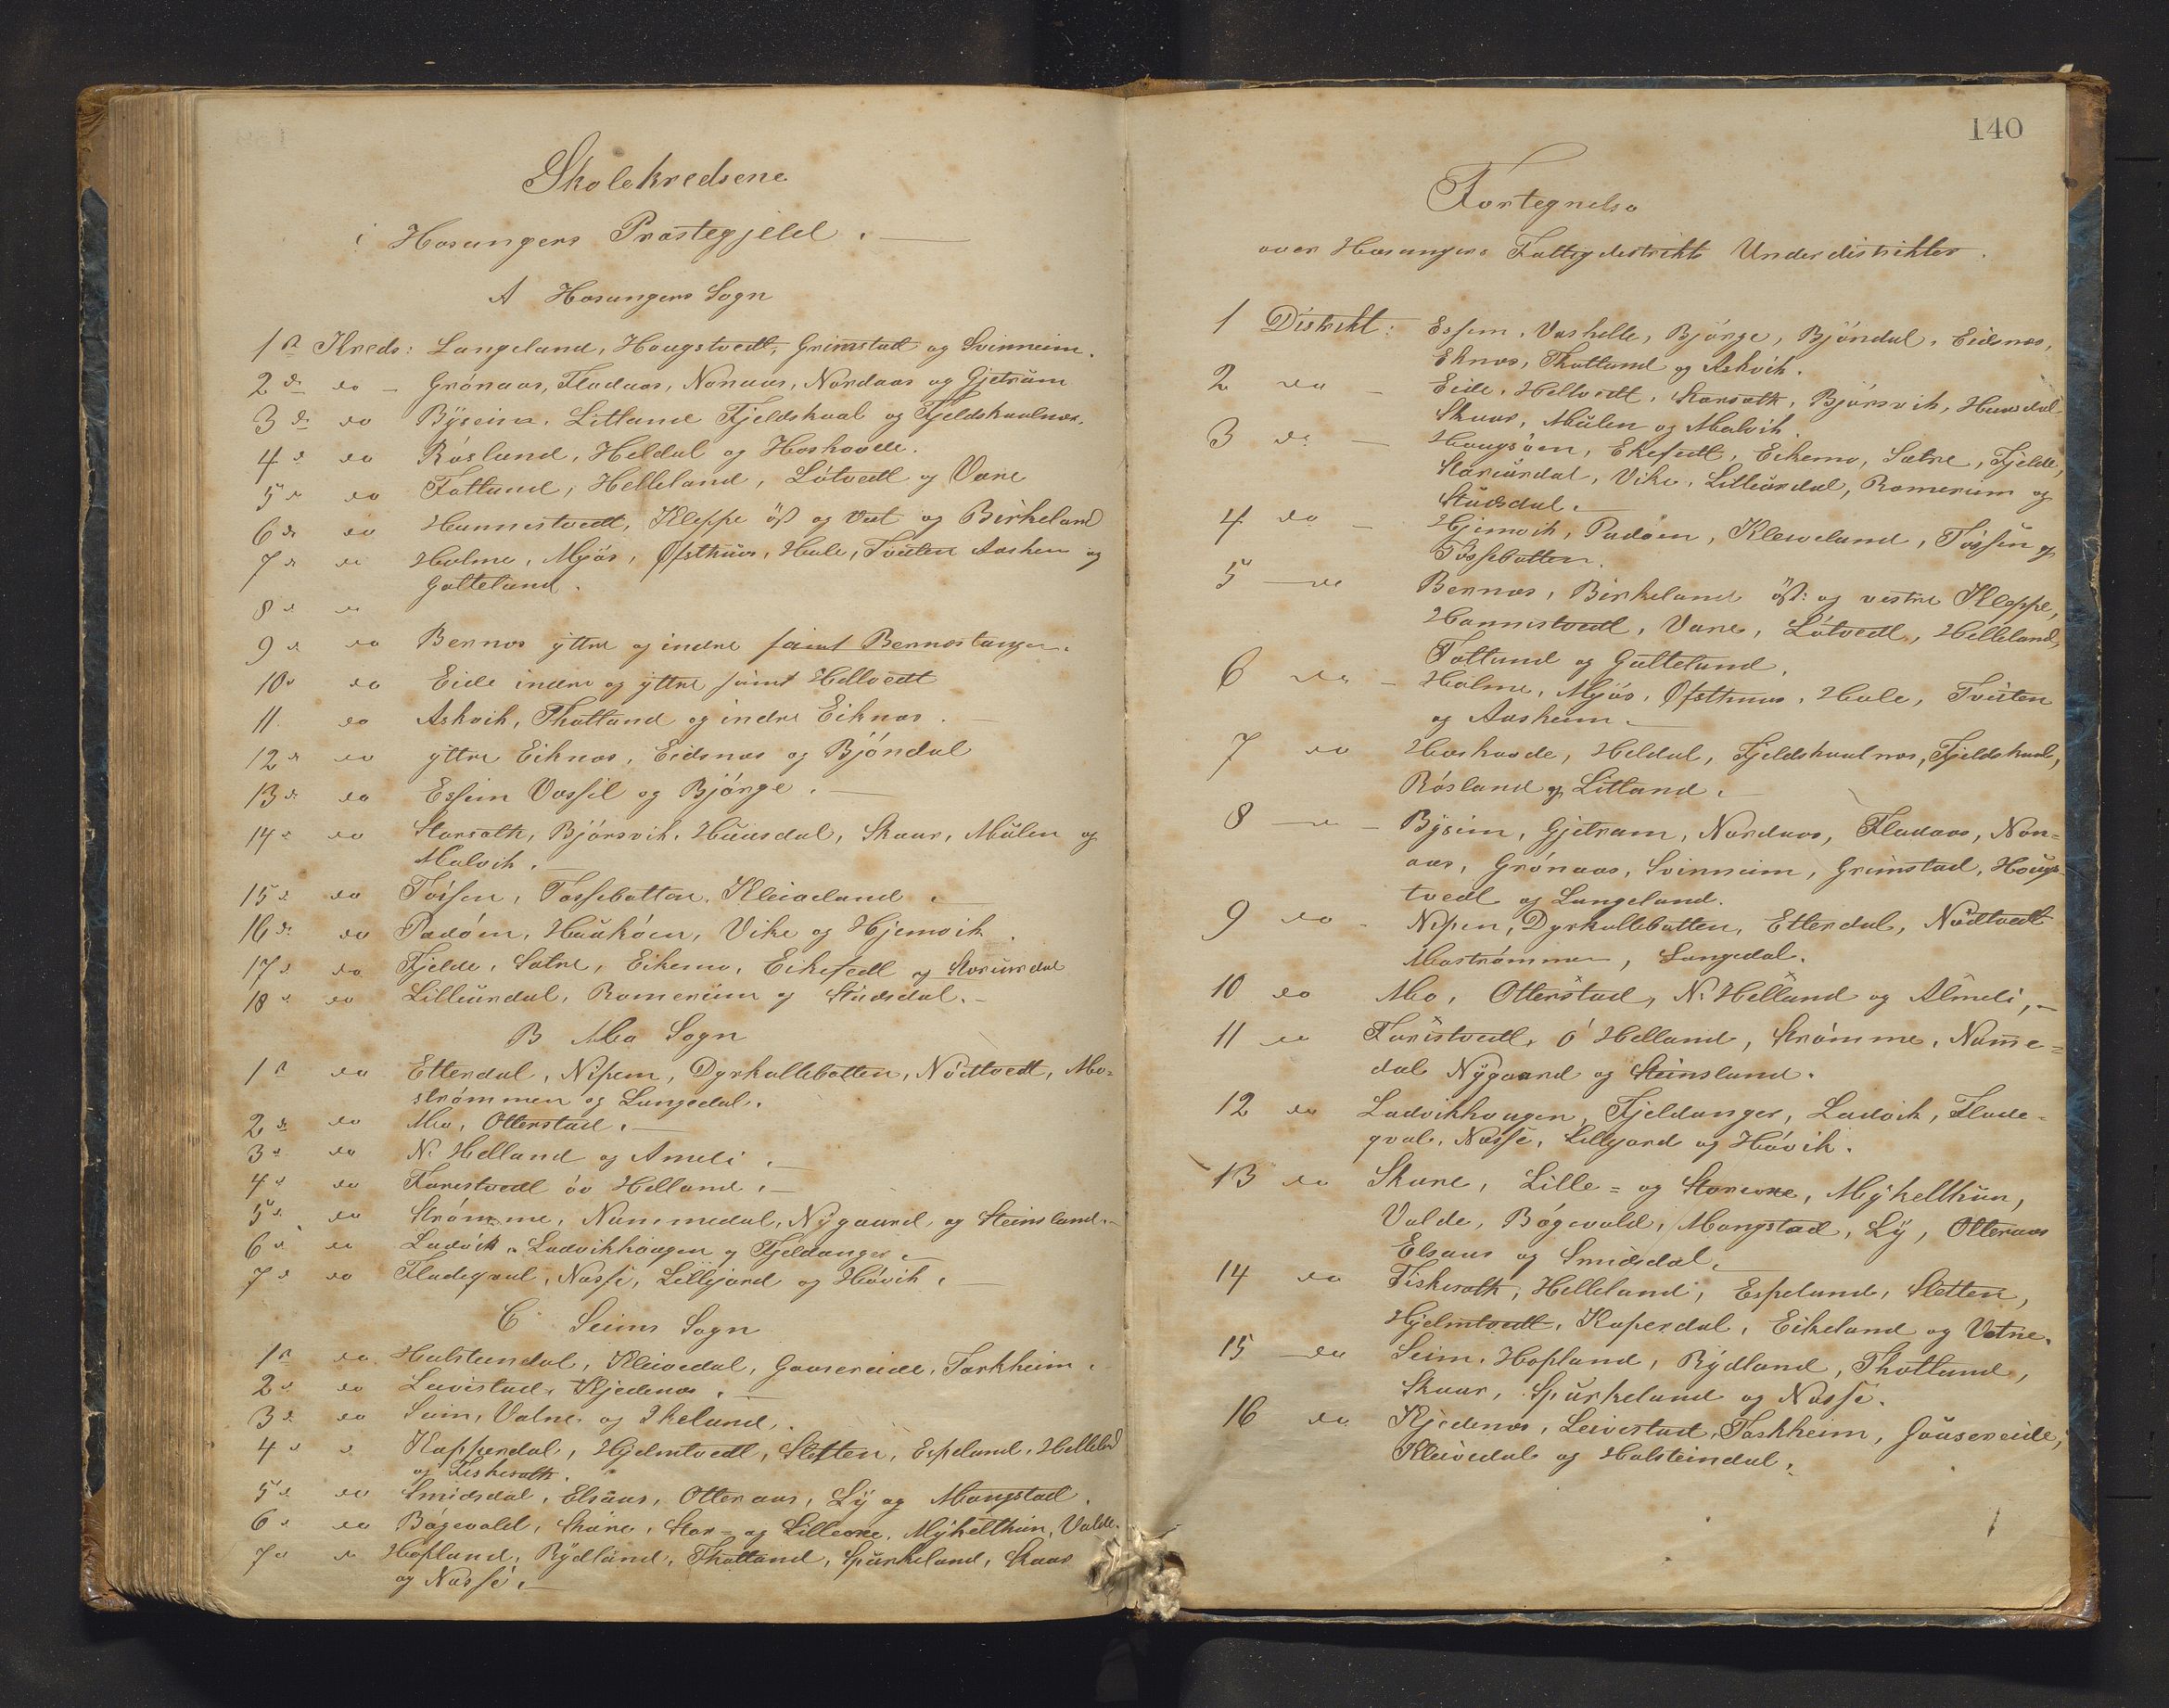 Skolekredsene
i Hosangers Præstegjeld.
A Hosangers Sogn
1ste Kreds: Langeland, Hougstvedt, Grimstad og Svinneim.
2de do – Grönaas, Fladaas, Nonaas, Nordaas og Gjetram
3de do Bÿseim, Litland Fjeldskaal og Fjeldskaalnæs.
4de do Rösland, Heldal og Hoshovde.
5te do Totland, Helleland, Lötvedt og Være
6te do Hannestvedt, Kleppe öst og vest og Birkeland
7de do Holme, Mjös, Ofsthus, Hole, Tveiten Aasheim og
Gatteland.
8de do
9de do Bernæs ÿttre og indre samt Bernæstangen.
10de do Eide indre og ÿttre samt Hellvedt
11. do Askvik, Thotland og indre Eiknæs.
12te do ÿttre Eiknæs, Eidsnæs og Bjöndal
13de do Essem Vassel og Bjórge.
14de do Skarsath, Bjórsvik, Huusdal, Skaar, Mülen og
Malvik.
15de do Tössen, Tössebotten, Kleiveland.
16de do Padöen, Hauköen, Vike og Hjemvik.
17de do Fjelde, Sætre, Eikemo, Eikefedt og Storurdal
18de do Lilleurdal, Romereim og Stüdsdal.
B Mo Sogn
1ste do Ettendal, Nipen, Dyrkollebotten, Nödtvedt, Mo-
strömmen og Langedal.
2de do Mo, Otterstad.
3de do N. Helland og Ameli.
4de do Farestvedt öv Helland.
5te do Strömme, Nammedal, Nÿgaard og Steinsland.
6te do Ladvik, Ladvikhougen og Fjeldanger.
7de do Fladeqval, Næsse, Lillejord og Hövik.
C Seims Sogn
1ste do Halsteindal, Kleivedal, Gaasereide, Torkheim.
2de do Leivestad, Kjedenæs.
3de do Seim, Vatne og Ikeland.
4de do Kapperdal, Hjelmtvedt, Sletten, Espeland, Helleld
og Fiskesath.
5te do Smidsdal, Elsaas, Otteraas, Lÿ og Mangstad.
6te do Bögevald, Skare, Stor- og Lilleore, Mÿkelthun, Valde.
7de do Hopland, Rÿdland, Thotland, Spürkeland, Skaar
og Næsse.
140
Fortegnelse
over Hosangers Fattigdistrikts Underdistrikter.
1 Distrikt: Essem, Vashelle, Bjórge, Bjöndal, Eidsnæs,
Eknæs, Thotland og Askvik.
2 do – Eide, Hellvedt, Skarsath, Bjórsvik, Huusdal
Skaar, Mülen og Malvik
3 do – Haugöen, Ekefedt, Eikemo, Sætre, Fjelde,
Storurdal, Vike, Lilleurdal, Romereim og
Stüdsdal.
4 do – Hjemvik, Padöen, Kleiveland, Tössen og
Tössebotten.
5 do Bernæs, Birkeland öst: og vestre Kleppe,
Hannestvedt, Være, Lötvedt, Helleland,
Totland og Gatteland.
6 do – Holme, Mjös, Ofsthuus, Hole, Tveiten
og Aasheim.
7 do Hoshovde, Heldal, Fjeldskaalnæs, Fjeldskaal,
Rösland og Litland.
8 do – Bÿseim, Gjetram, Nordaas, Fladaas, Non-
aas, Grönaas, Svinneim, Grimstad, Hougs-
tvedt og Langeland.
9 do – Nipen, Dyrkollebotten, Ettendal, Nödtvedt
Mostrømmen, Langedal.
10 do Mo, Otterstad, N. Helland og Almeli,
11 do Farestvedt, ö Helland, Strömme, Namme-
dal Nÿgaard og Steinsland.
12 do Ladvikhougen, Fjeldanger, Ladvik, Flade-
qval, Næsse, Lillejord og Hövik.
13 do Skare, Lille- og Storeore, Mÿkelthun,
Valde, Bögevald, Mangstad, Lÿ, Otteraas
Elsaas og Smidsdal.
14 do Fiskesath, Helleland, Espeland, Sletten,
Hjelmtvedt, Kaperdal, Eikeland og Vatne.
15 do Seim, Hopland, Rÿdland, Thotland,
Skaar, Spürkeland og Næsse.
16 do Kjedenæs, Leivestad, Toskheim, Gaasereide,
Kleivedal og Halsteindal.